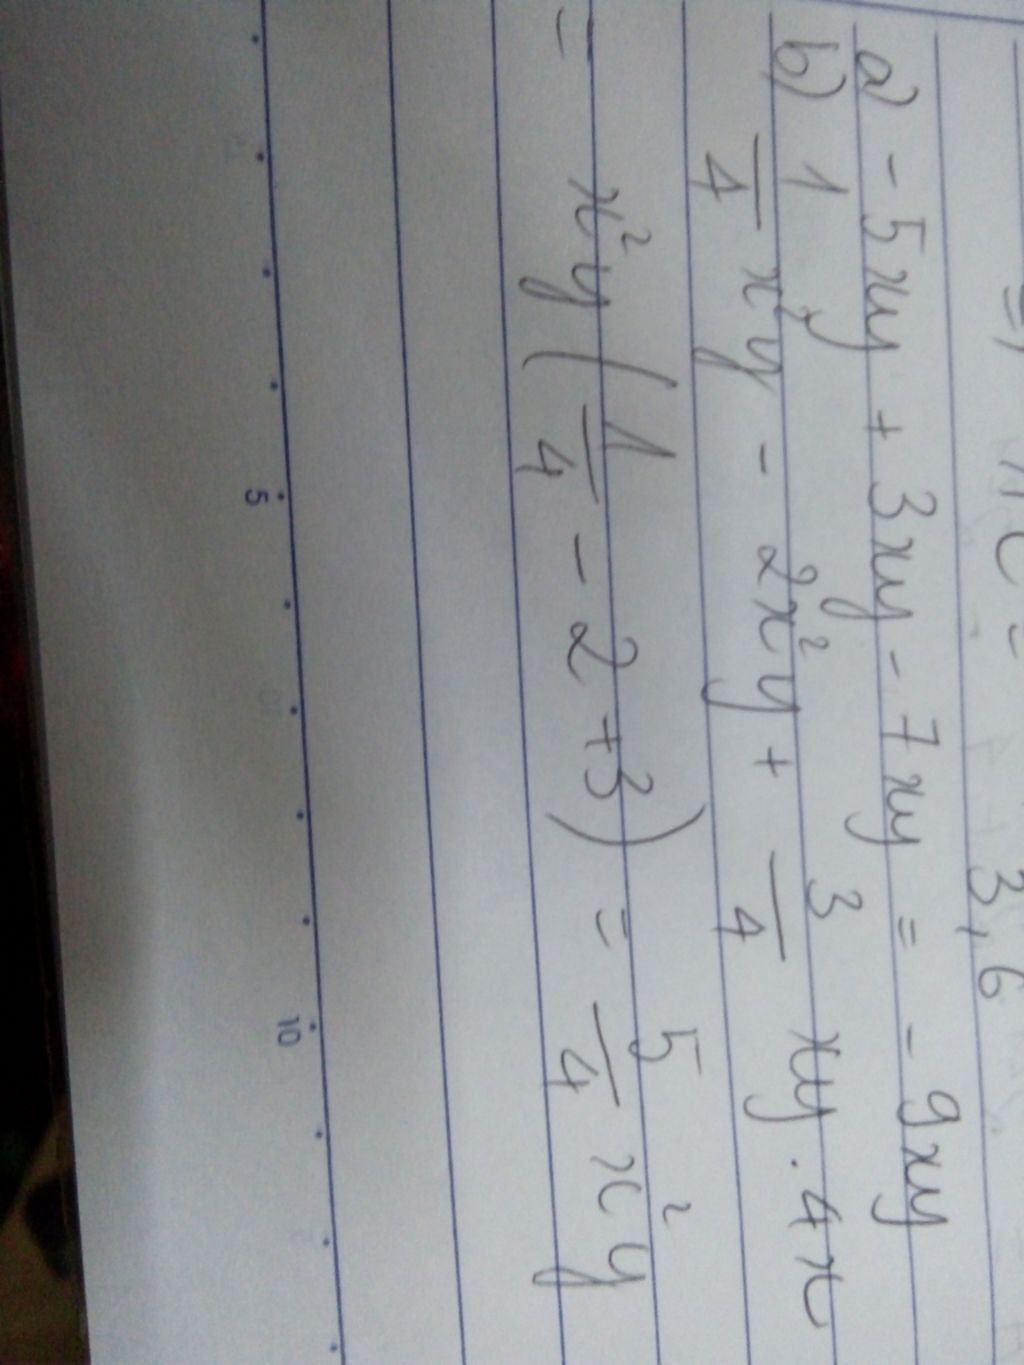 3,6
a) - 5xy + 3xy - 7xy = - 9xy
b) 1/4 x²y - 2x²y + 3/4 xy . 4x
= x²y ( 1/4 - 2 + 3 ) = 5/4 x²y
5 10